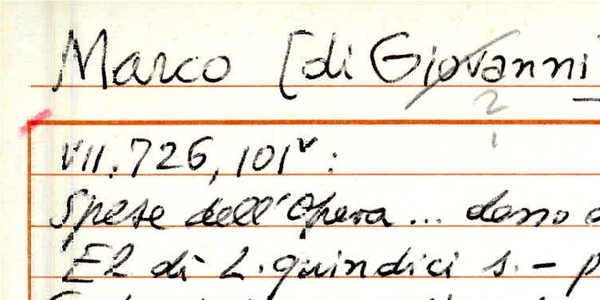 Marco [di Giovanni
?
VII.726, 101v:
Spese dell'Opera ... dono
El dì L. quindici s. – p